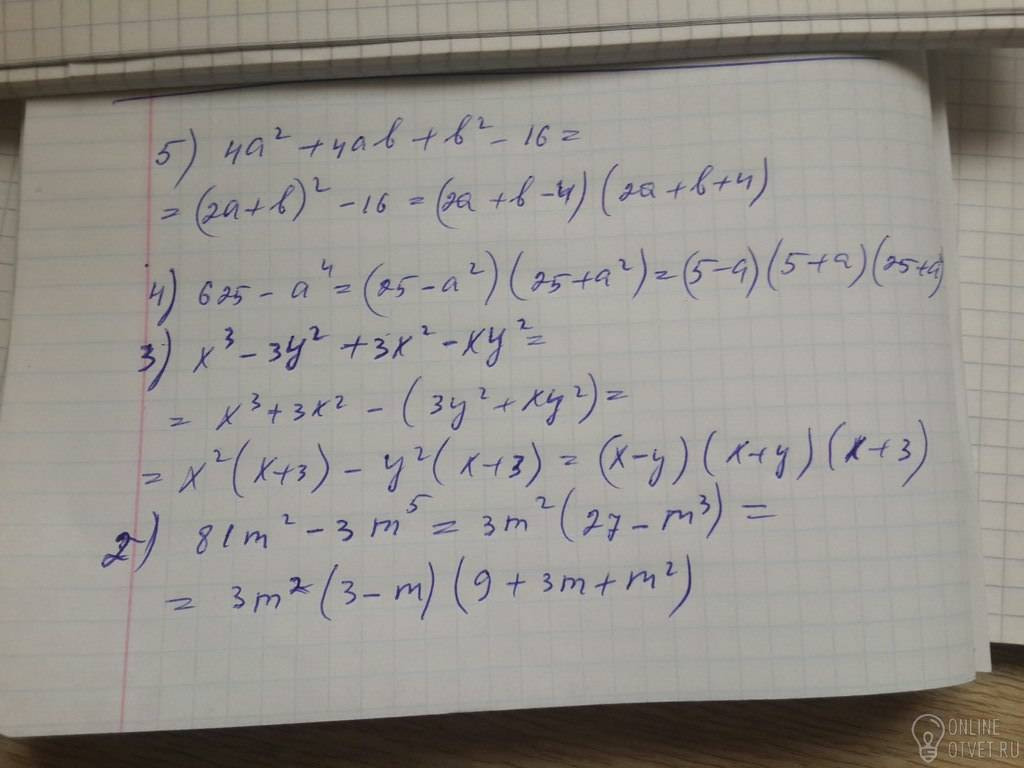 5) 4a² + 4ab + b² - 16 =
= (2a + b)² - 16 = (2a + b - 4) (2a + b + 4)
4) 625 - a⁴ = (25 - a²) (25 + a²) = (5 - a) (5 + a) (25 + a
3) x³ - 3y² + 3x² - xy² =
= x³ + 3x² - (3y² + xy²) =
= x² (x + 3) - y² (x + 3) = (x - y) (x + y) (x + 3)
2) 81m² - 3m⁵ = 3m² (27 - m³) =
= 3m² (3 - m) (9 + 3m + m²)
ONLINE
OTVET.RU